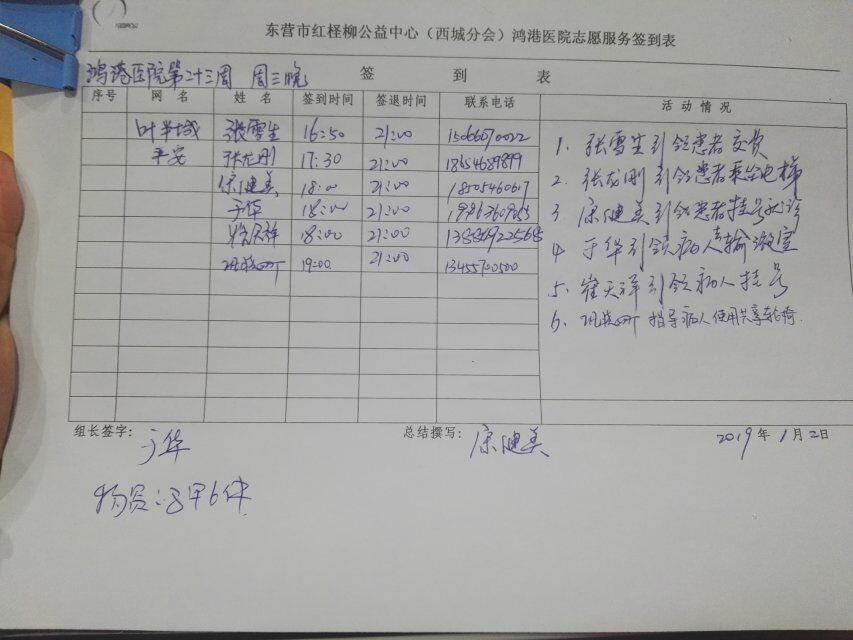 东营市红柽柳公益中心（西城分会）鸿港医院志愿服务签到表
鸿港医院第二十三周 周三晚 签 到 表
序号 网 名 姓 名 签到时间 签退时间 联系电话 活 动 情 况
叶半城 张雪生 16:50 21:00 15066070022
平安 张龙刚 17:30 21:00 18654689899
康健美 18:00 21:00 18505460617
于华 18:00 21:00
崔天祥 18:00 21:00 13884922568
19:00 21:00 13455700500
1. 张雪生引领患者交费
2. 张龙刚引领患者乘坐电梯
3 康健美引领患者挂号就诊
4 于华引领病人去输液室
5. 崔天祥引领病人挂号
6. 指导病人使用共享轮椅.
组长签字: 于华 总结撰写: 康健美 2019年1月2日
物资:马甲6件